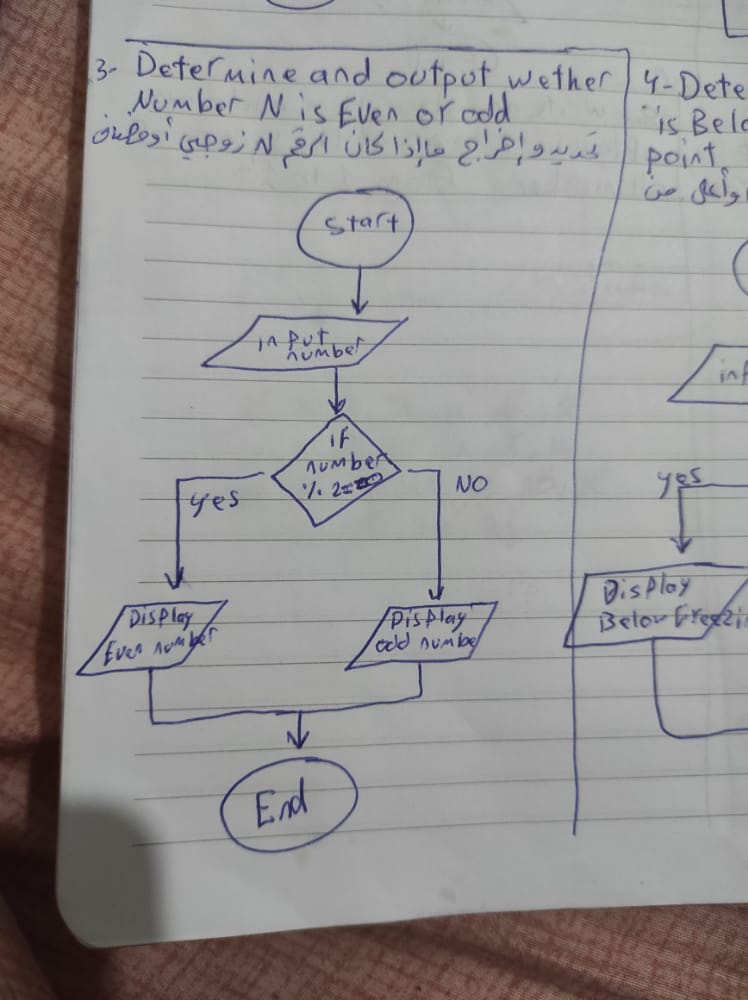 3- Determine and output wether
Number N is Even or odd
تحديد وإخراج ماإذا كان الرقم N زوجي أو
Start
input
number
if
number
% 2==0
yes
NO
Display
Even number
Display
odd number
End
4- Dete
is Belo
point,
أو أقل من
inp
yes
Display
Below Freezin